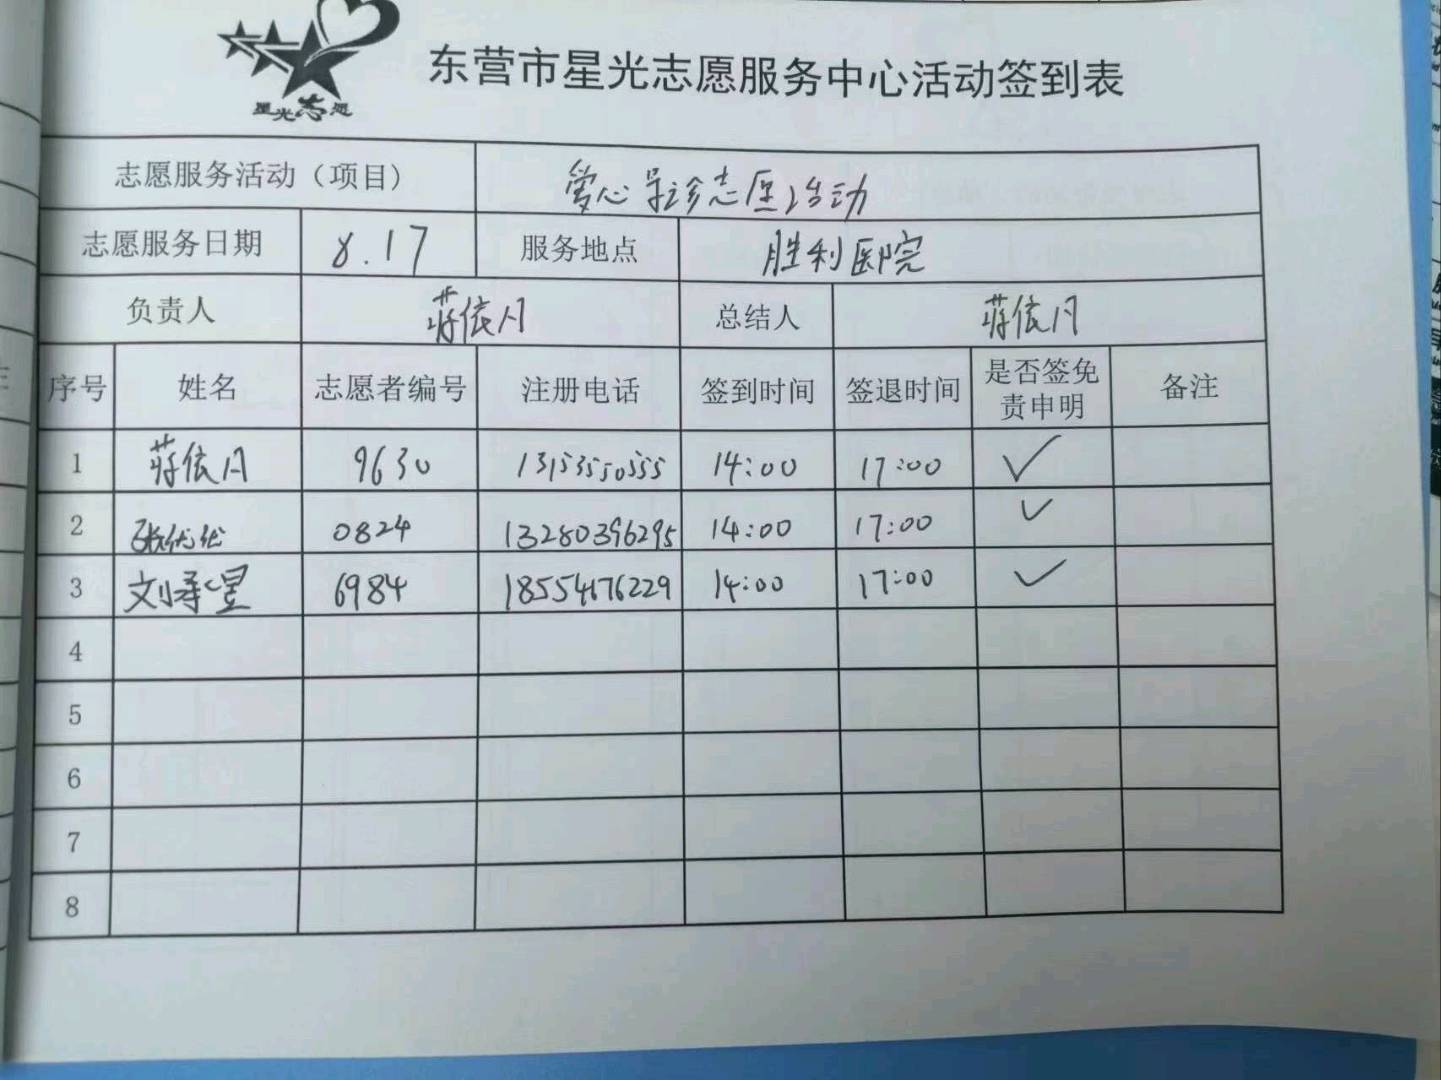 星光志愿
东营市星光志愿服务中心活动签到表
志愿服务活动（项目） 爱心导诊志愿活动
志愿服务日期 8.17 服务地点 胜利医院
负责人 蒋依月 总结人 蒋依月
序号 姓名 志愿者编号 注册电话 签到时间 签退时间 是否签免责申明 备注
1 蒋依月 9630 13153550555 14:00 17:00 ✓
2 张优优 0824 13280396295 14:00 17:00 ✓
3 刘承昱 6984 18554676229 14:00 17:00 ✓
4
5
6
7
8